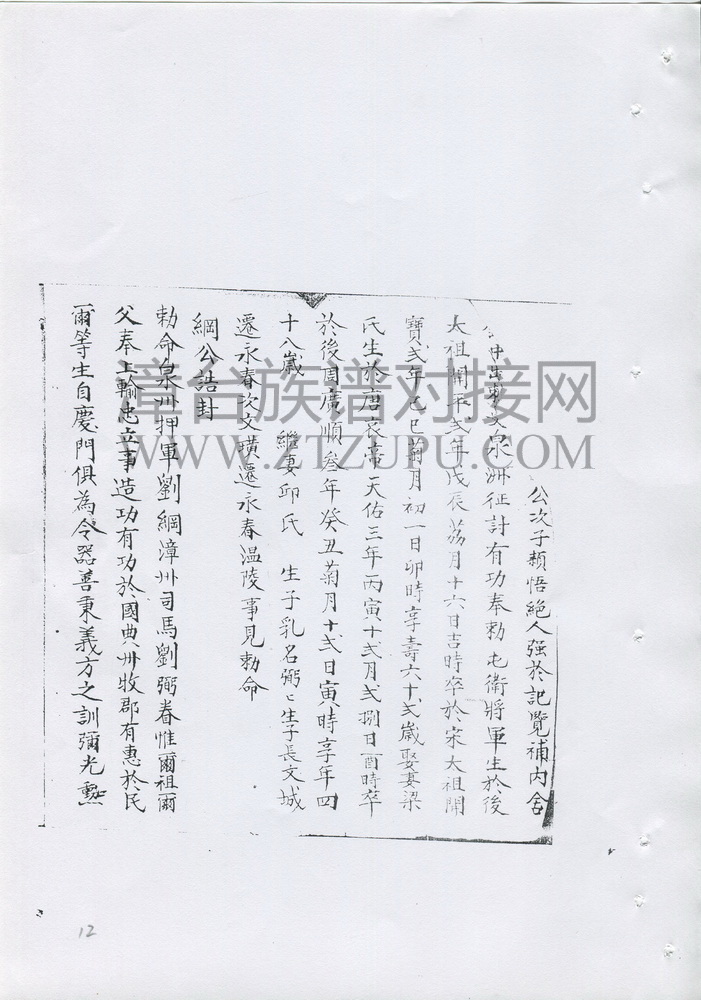 公次子頴悟絕人强於記覽補內舍
中出 父泉洲征討有功奉勑屯衛將軍生於後
大祖開平弍年戊辰荔月十六日吉時卒於宋大祖開
寶弍年己巳菊月初一日卯時享壽六十弍歲娶妻梁
氏生於唐哀帝天佑三年丙寅十弍月弍捌日酉時卒
於後周廣順叁年癸丑菊月十弍日寅時享年四
十八歲 繼妻邱氏 生子乳名弼〻生子長文城
遷永春次文璜遷永春溫陵事見勑命
綱公誥封
勑命泉州押軍劉綱漳州司馬劉弼眷惟爾祖爾
父奉上輸忠立事造功有功於國典州牧郡有惠於民
爾等生自慶門俱為令器善秉義方之訓彌光勲
章台族谱对接网
WWW.ZTZUPU.COM
12